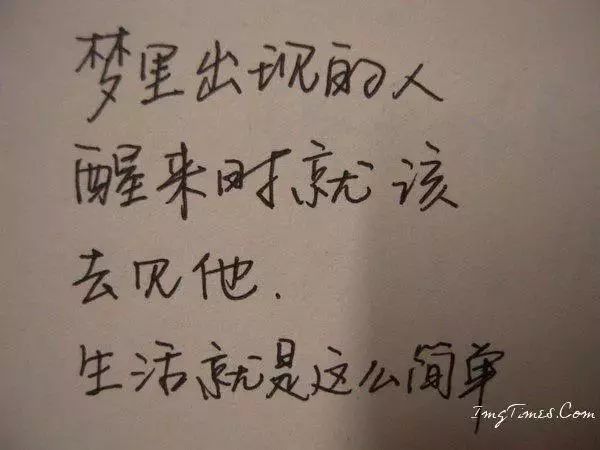 梦里出现的人
醒来时就该
去见他.
生活就是这么简单
ImgTimes.Com